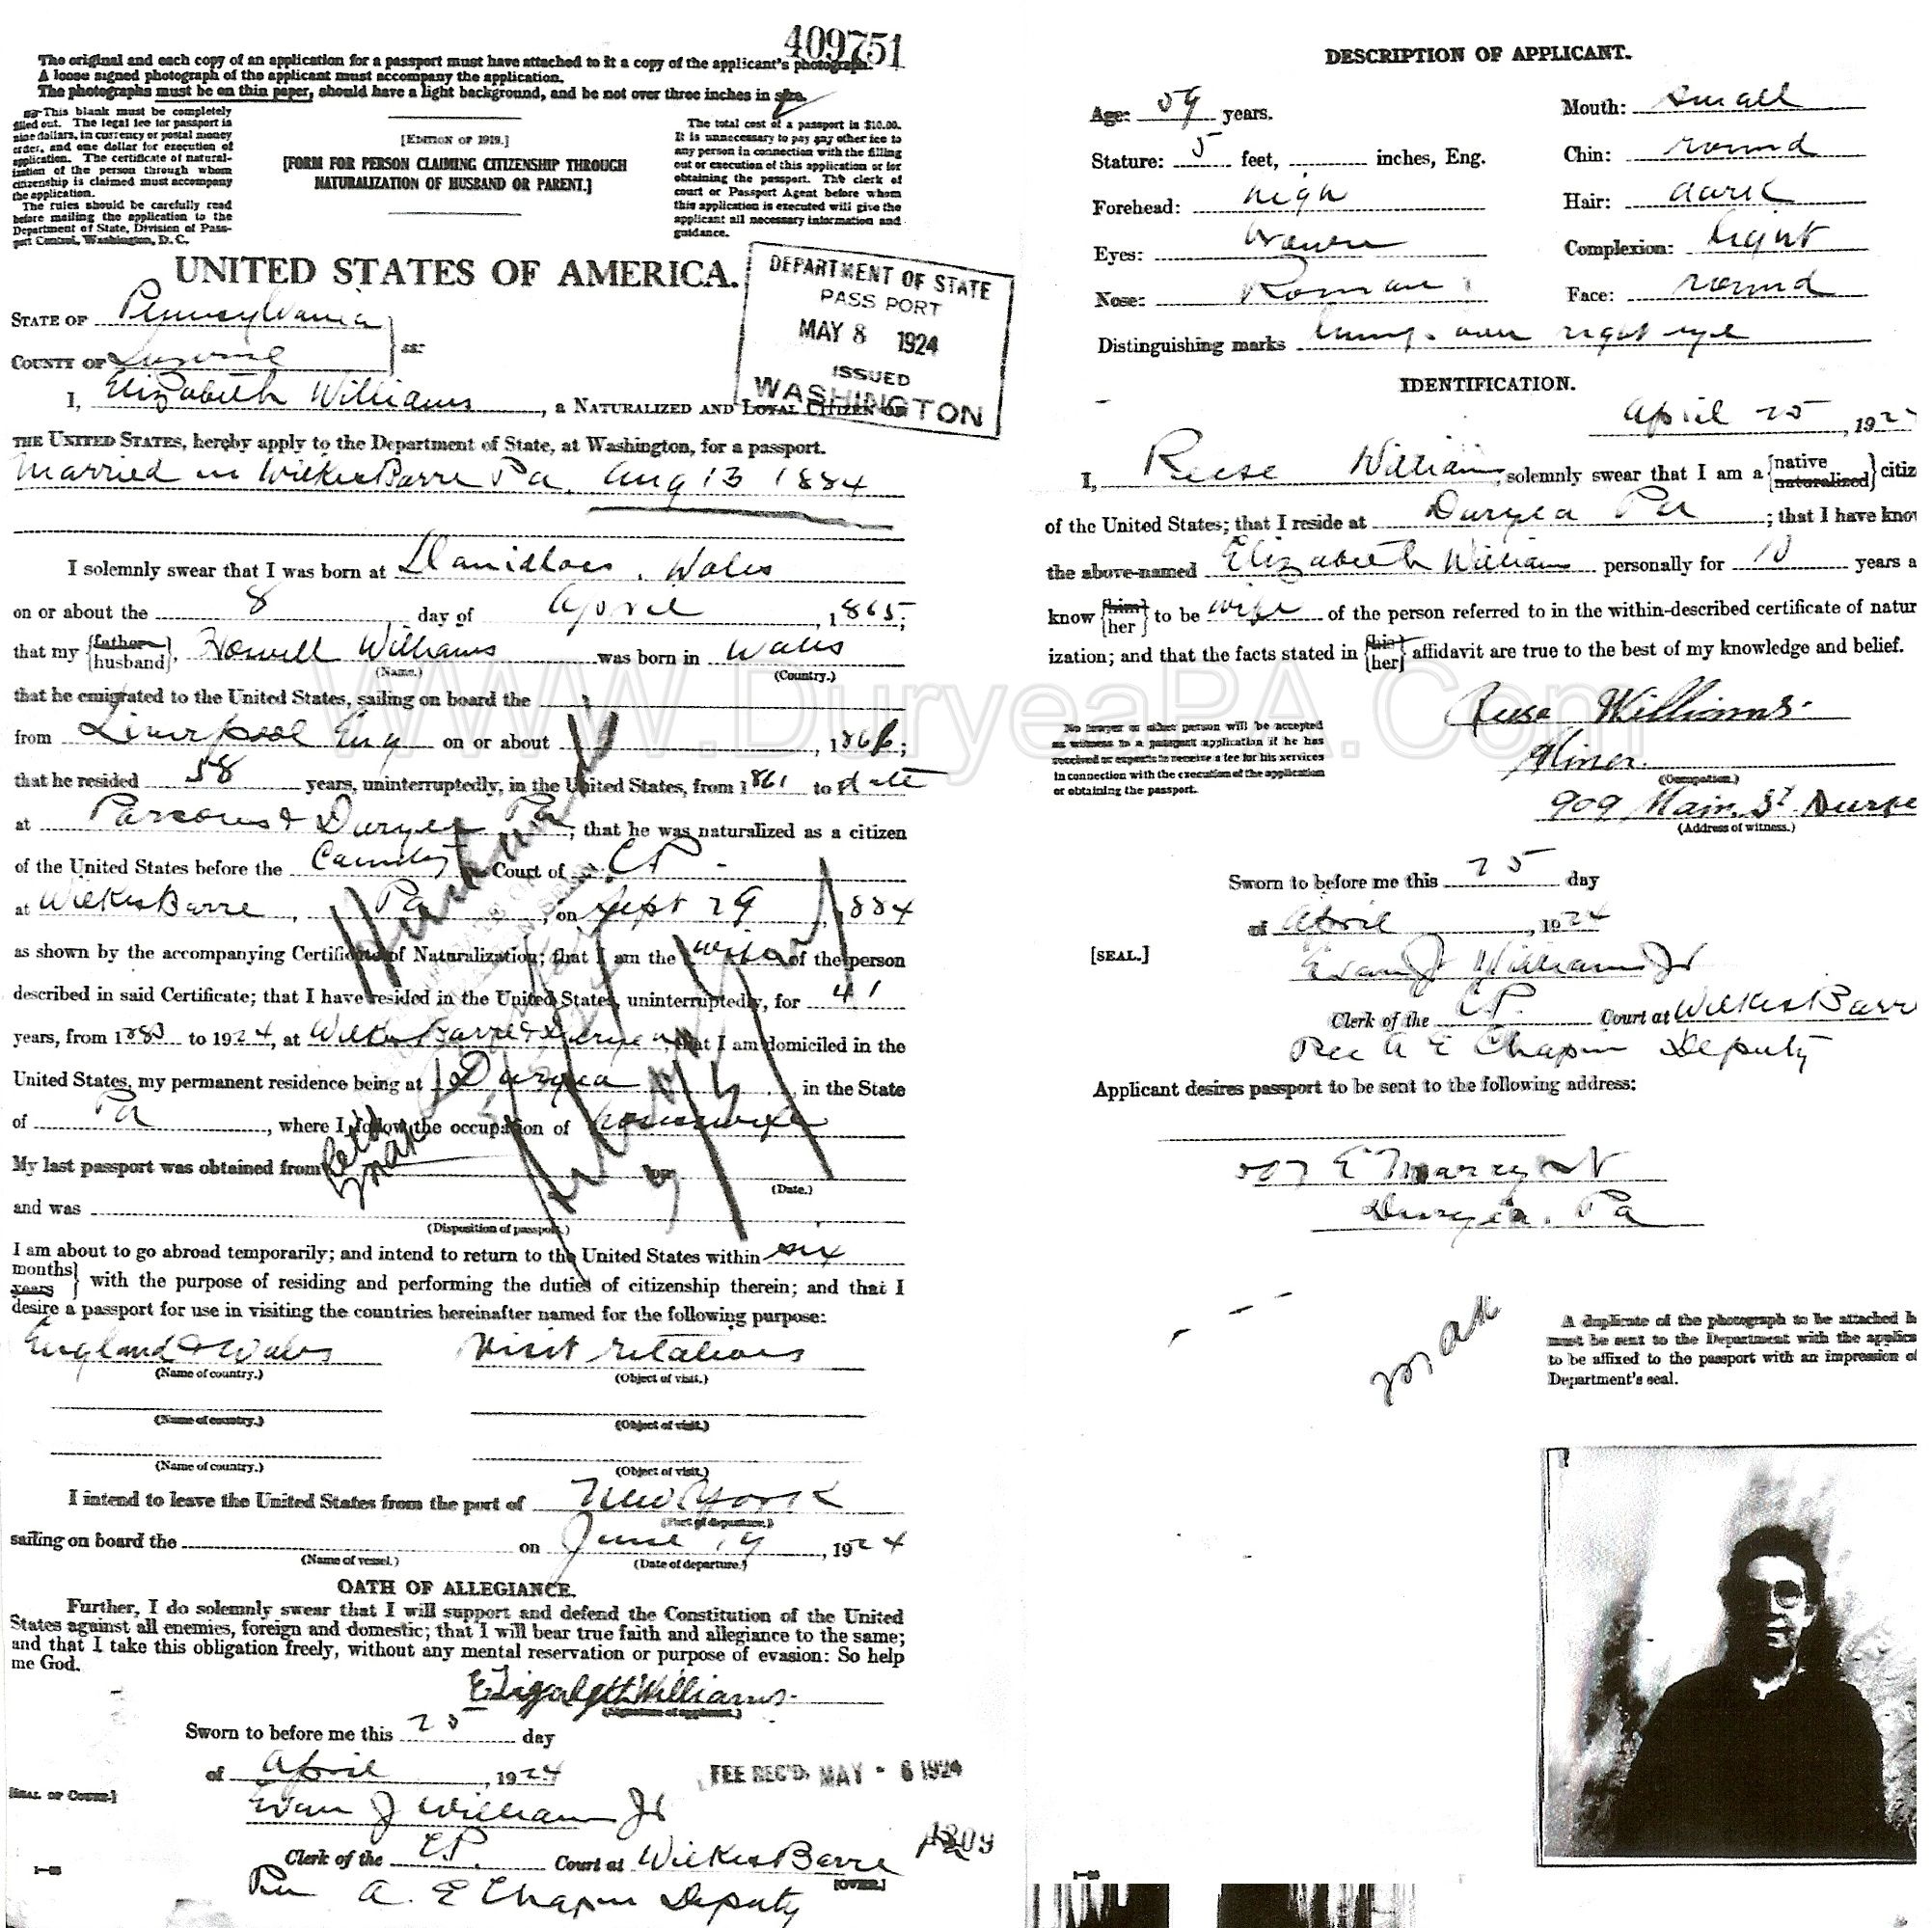 409751
The original and each copy of an application for a passport must have attached to it a copy of the applicant's photograph.
A loose signed photograph of the applicant must accompany the application.
The photographs must be on thin paper, should have a light background, and be not over three inches in size.
This blank must be completely
filled out. The legal fee for passport is
nine dollars, in currency or postal money
order, and one dollar for execution of
application. The certificate of natural-
ization of the person through whom
citizenship is claimed must accompany
the application.
The rules should be carefully read
before mailing the application to the
Department of State, Division of Pass-
port Control, Washington, D. C.
[EDITION OF 1919.]
[FORM FOR PERSON CLAIMING CITIZENSHIP THROUGH
NATURALIZATION OF HUSBAND OR PARENT.]
The total cost of a passport is $10.00.
It is unnecessary to pay any other fee to
any person in connection with the filling
out or execution of this application or for
obtaining the passport. The clerk of
court or Passport Agent before whom
this application is executed will give the
applicant all necessary information and
guidance.
UNITED STATES OF AMERICA.
DEPARTMENT OF STATE
PASSPORT
MAY 8 1924
ISSUED
WASHINGTON
STATE OF Pennsylvania
COUNTY OF Luzerne ss:
I, Elizabeth Williams, a NATURALIZED AND LOYAL CITIZEN OF
THE UNITED STATES, hereby apply to the Department of State, at Washington, for a passport.
Married in Wilkes Barre Pa. Aug 13 1884
I solemnly swear that I was born at Llanidloes, Wales
on or about the 8 day of April, 1865;
that my {father husband}, Howell Williams was born in Wales
(Name.) (Country.)
that he emigrated to the United States, sailing on board the
from Liverpool Eng on or about , 186 ;
that he resided 58 years, uninterruptedly, in the United States, from 1861 to date
at Parsons & Duryea Pa; that he was naturalized as a citizen
of the United States before the County Court of CP
at Wilkes Barre, Pa, on Sept 29, 1884
as shown by the accompanying Certificate of Naturalization; that I am the wife of the person
described in said Certificate; that I have resided in the United States, uninterruptedly, for 41
years, from 1883 to 1924, at Wilkes Barre & Duryea, that I am domiciled in the
United States, my permanent residence being at Duryea in the State
of Pa, where I follow the occupation of housewife
My last passport was obtained from on
(Date.)
and was
(Disposition of passport.)
I am about to go abroad temporarily; and intend to return to the United States within six
{months years} with the purpose of residing and performing the duties of citizenship therein; and that I
desire a passport for use in visiting the countries hereinafter named for the following purpose:
England & Wales Visit relations
(Name of country.) (Object of visit.)
(Name of country.) (Object of visit.)
(Name of country.) (Object of visit.)
I intend to leave the United States from the port of New York
(Port of departure.)
sailing on board the on June 19, 1924
(Name of vessel.) (Date of departure.)
OATH OF ALLEGIANCE.
Further, I do solemnly swear that I will support and defend the Constitution of the United
States against all enemies, foreign and domestic; that I will bear true faith and allegiance to the same;
and that I take this obligation freely, without any mental reservation or purpose of evasion: So help
me God.
Elizabeth Williams
(Signature of applicant.)
Sworn to before me this 25 day
of April, 1924
FEE REC'D. MAY - 6 1924
[SEAL OF COURT.]
Evan J Williams Jr
Clerk of the C.P. Court at Wilkes Barre
Per A. E Chapin Deputy
[OVER.]
DESCRIPTION OF APPLICANT.
Age: 59 years. Mouth: small
Stature: 5 feet, inches, Eng. Chin: round
Forehead: high Hair: dark
Eyes: brown Complexion: Light
Nose: Roman Face: round
Distinguishing marks lump over right eye
IDENTIFICATION.
April 25, 192
I, Reese Williams, solemnly swear that I am a {native naturalized} citiz
of the United States; that I reside at Duryea Pa; that I have know
the above-named Elizabeth Williams personally for 10 years a
know {him her} to be wife of the person referred to in the within-described certificate of natur
ization; and that the facts stated in {his her} affidavit are true to the best of my knowledge and belief.
WWW.DuryeaPA.Com
Reese Williams.
No lawyer or other person will be accepted
as witness to a passport application if he has
received or expects to receive a fee for his services
in connection with the execution of the application
or obtaining the passport.
Miner.
(Occupation.)
909 Main St. Durye
(Address of witness.)
Sworn to before me this 25 day
of April, 1924
[SEAL.]
Evan J Williams Jr
Clerk of the C.P. Court at Wilkes Barr
Per A E Chapin Deputy
Applicant desires passport to be sent to the following address:
507 E Marcy St
Duryea, Pa
A duplicate of the photograph to be attached h
must be sent to the Department with the applica
to be affixed to the passport with an impression of
Department's seal.